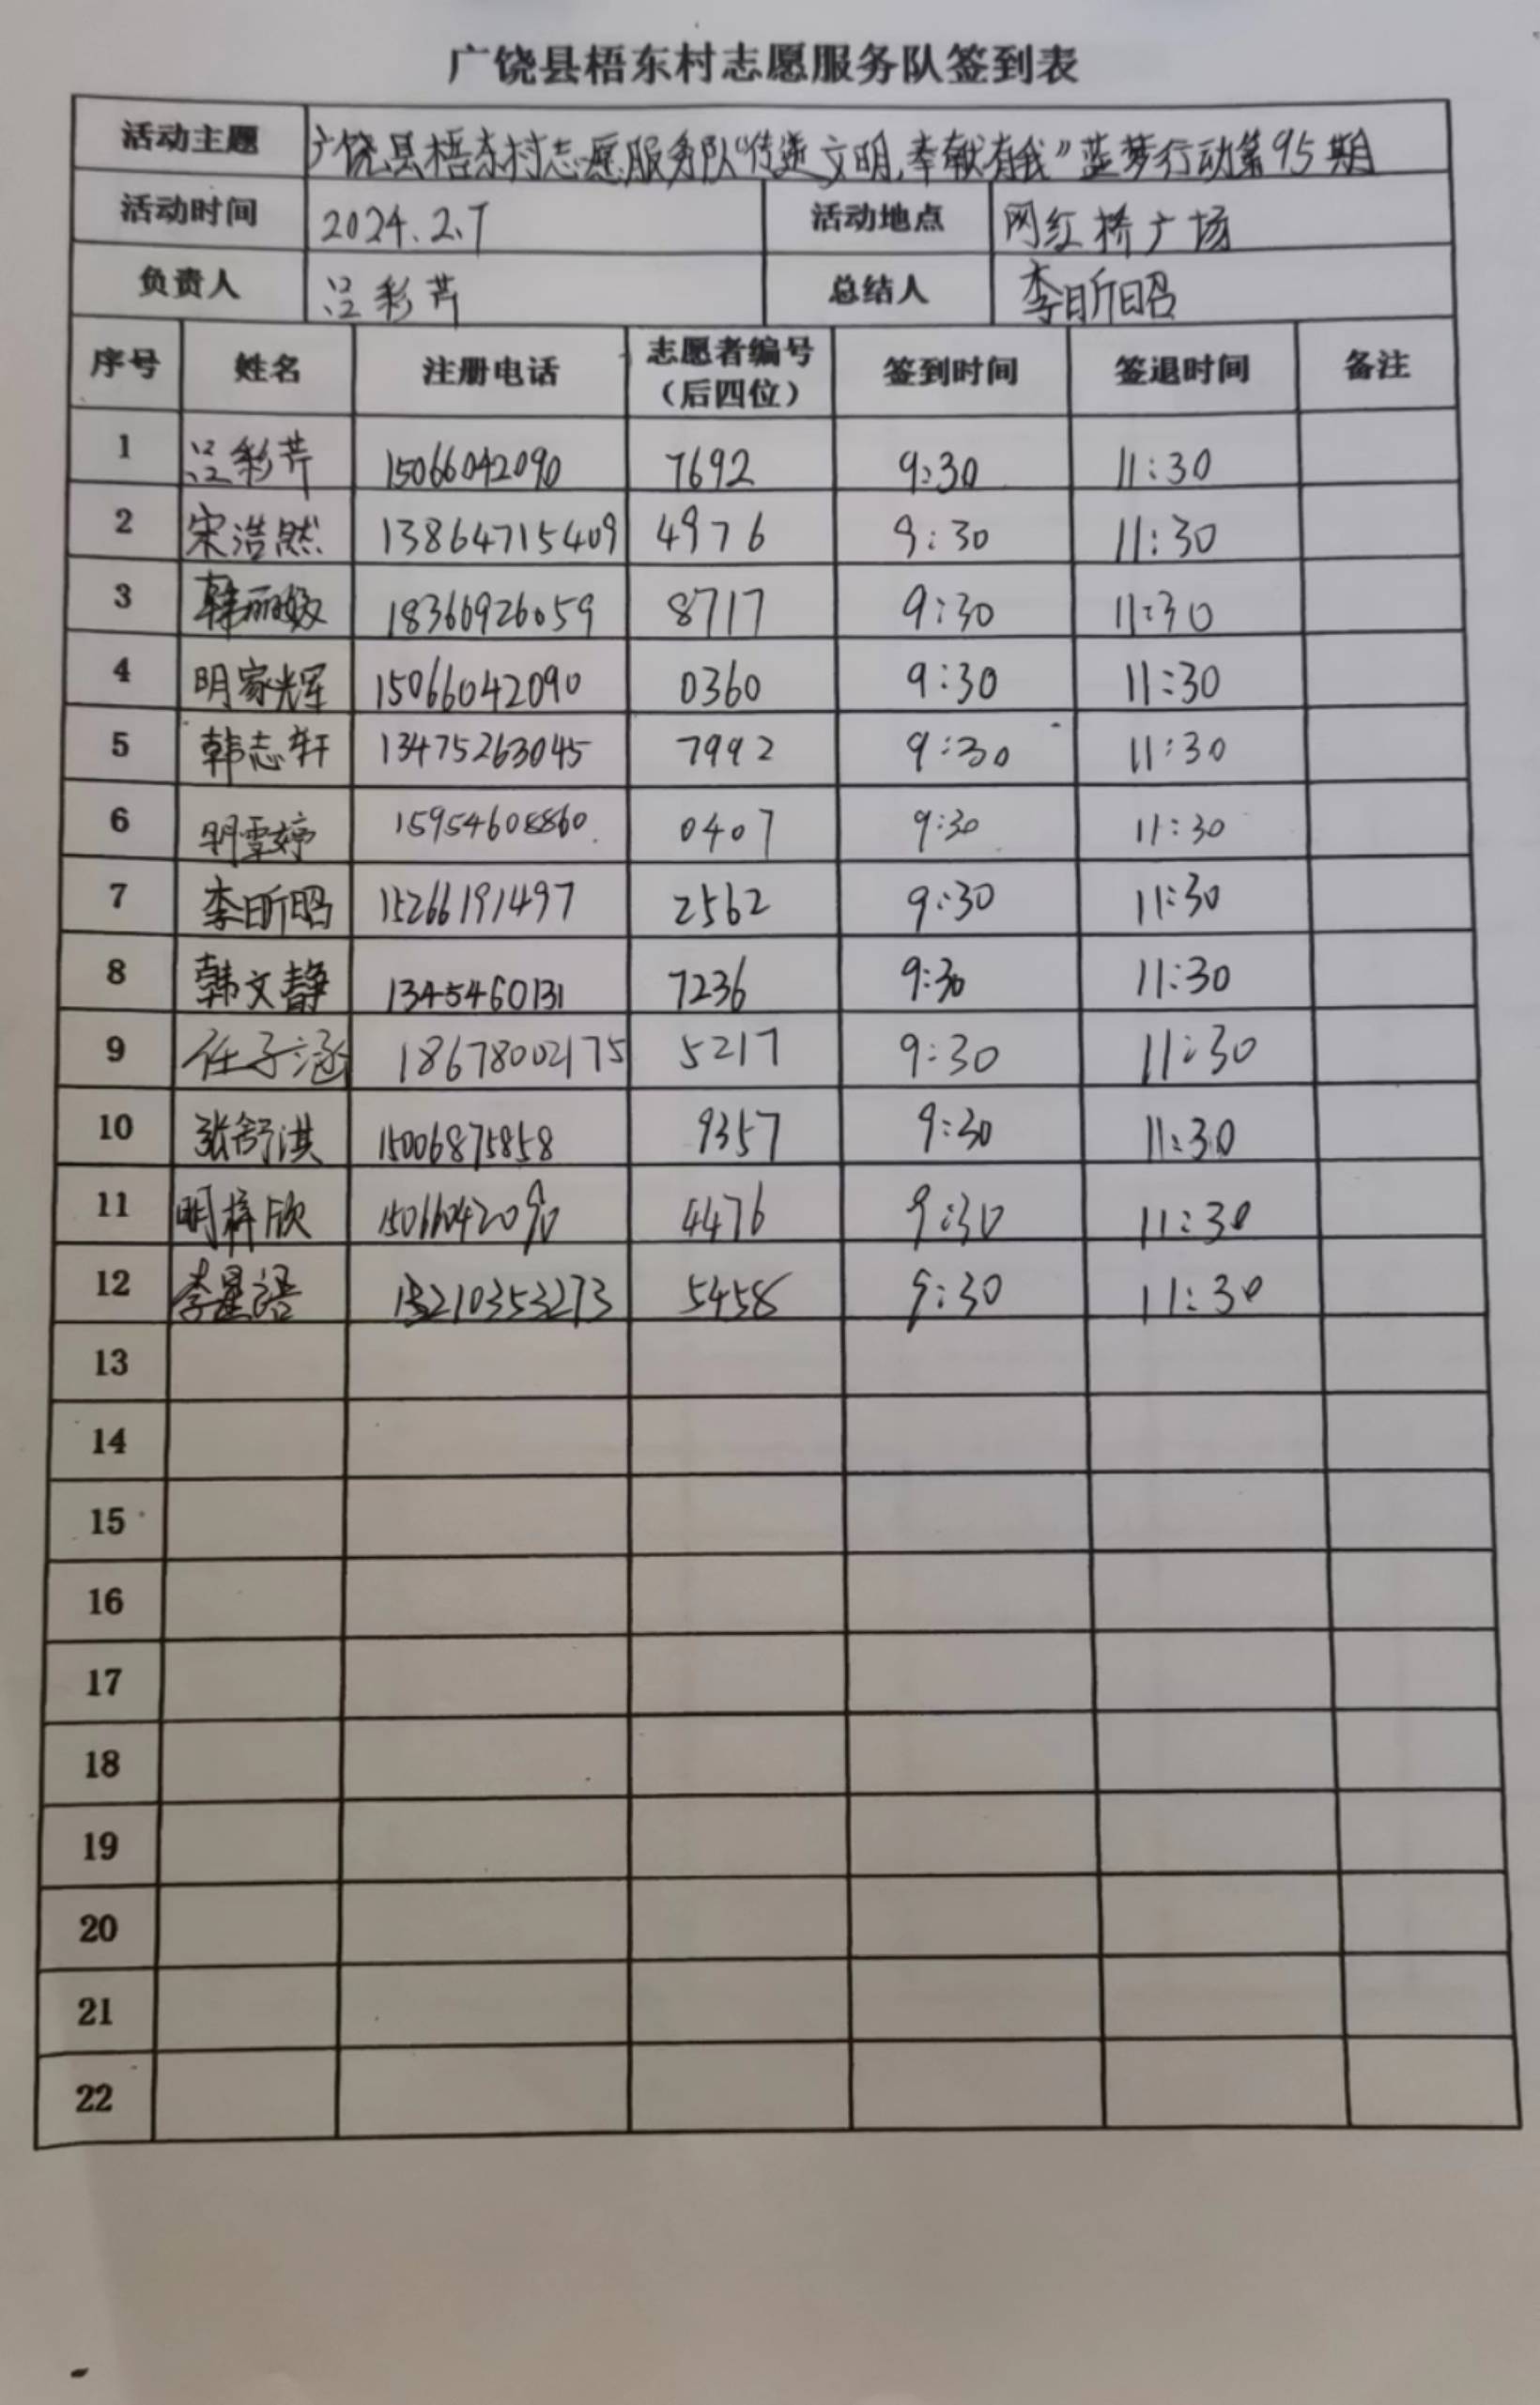 广饶县梧东村志愿服务队签到表
活动主题 广饶县梧东村志愿服务队“传递文明,奉献有我”蓝梦行动第95期
活动时间 2024.2.7 活动地点 网红桥广场
负责人 吕彩芹 总结人 李昕昭
序号 姓名 注册电话 志愿者编号（后四位） 签到时间 签退时间 备注
1 吕彩芹 15066042090 7692 9:30 11:30
2 宋浩然 13864715409 4976 9:30 11:30
3 韩丽姣 18366926059 8717 9:30 11:30
4 明家辉 15066042090 0360 9:30 11:30
5 韩志轩 13475263045 7992 9:30 11:30
6 明雯婷 15954608860 0407 9:30 11:30
7 李昕昭 15266191497 2562 9:30 11:30
8 韩文静 1345460131 7236 9:30 11:30
9 任子涵 18678002175 5217 9:30 11:30
10 张舒淇 15006875858 9357 9:30 11:30
11 明梓欣 15066042090 4476 9:30 11:30
12 李星语 5458 9:30 11:30
13
14
15
16
17
18
19
20
21
22